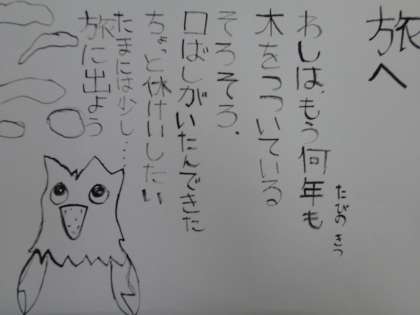 旅へ
たびのきつ
わしは、もう何年も
木をつついている
そろそろ、
口ばしがいたんできた
ちょっと休けいしたい
たまには少し…
旅に出よう